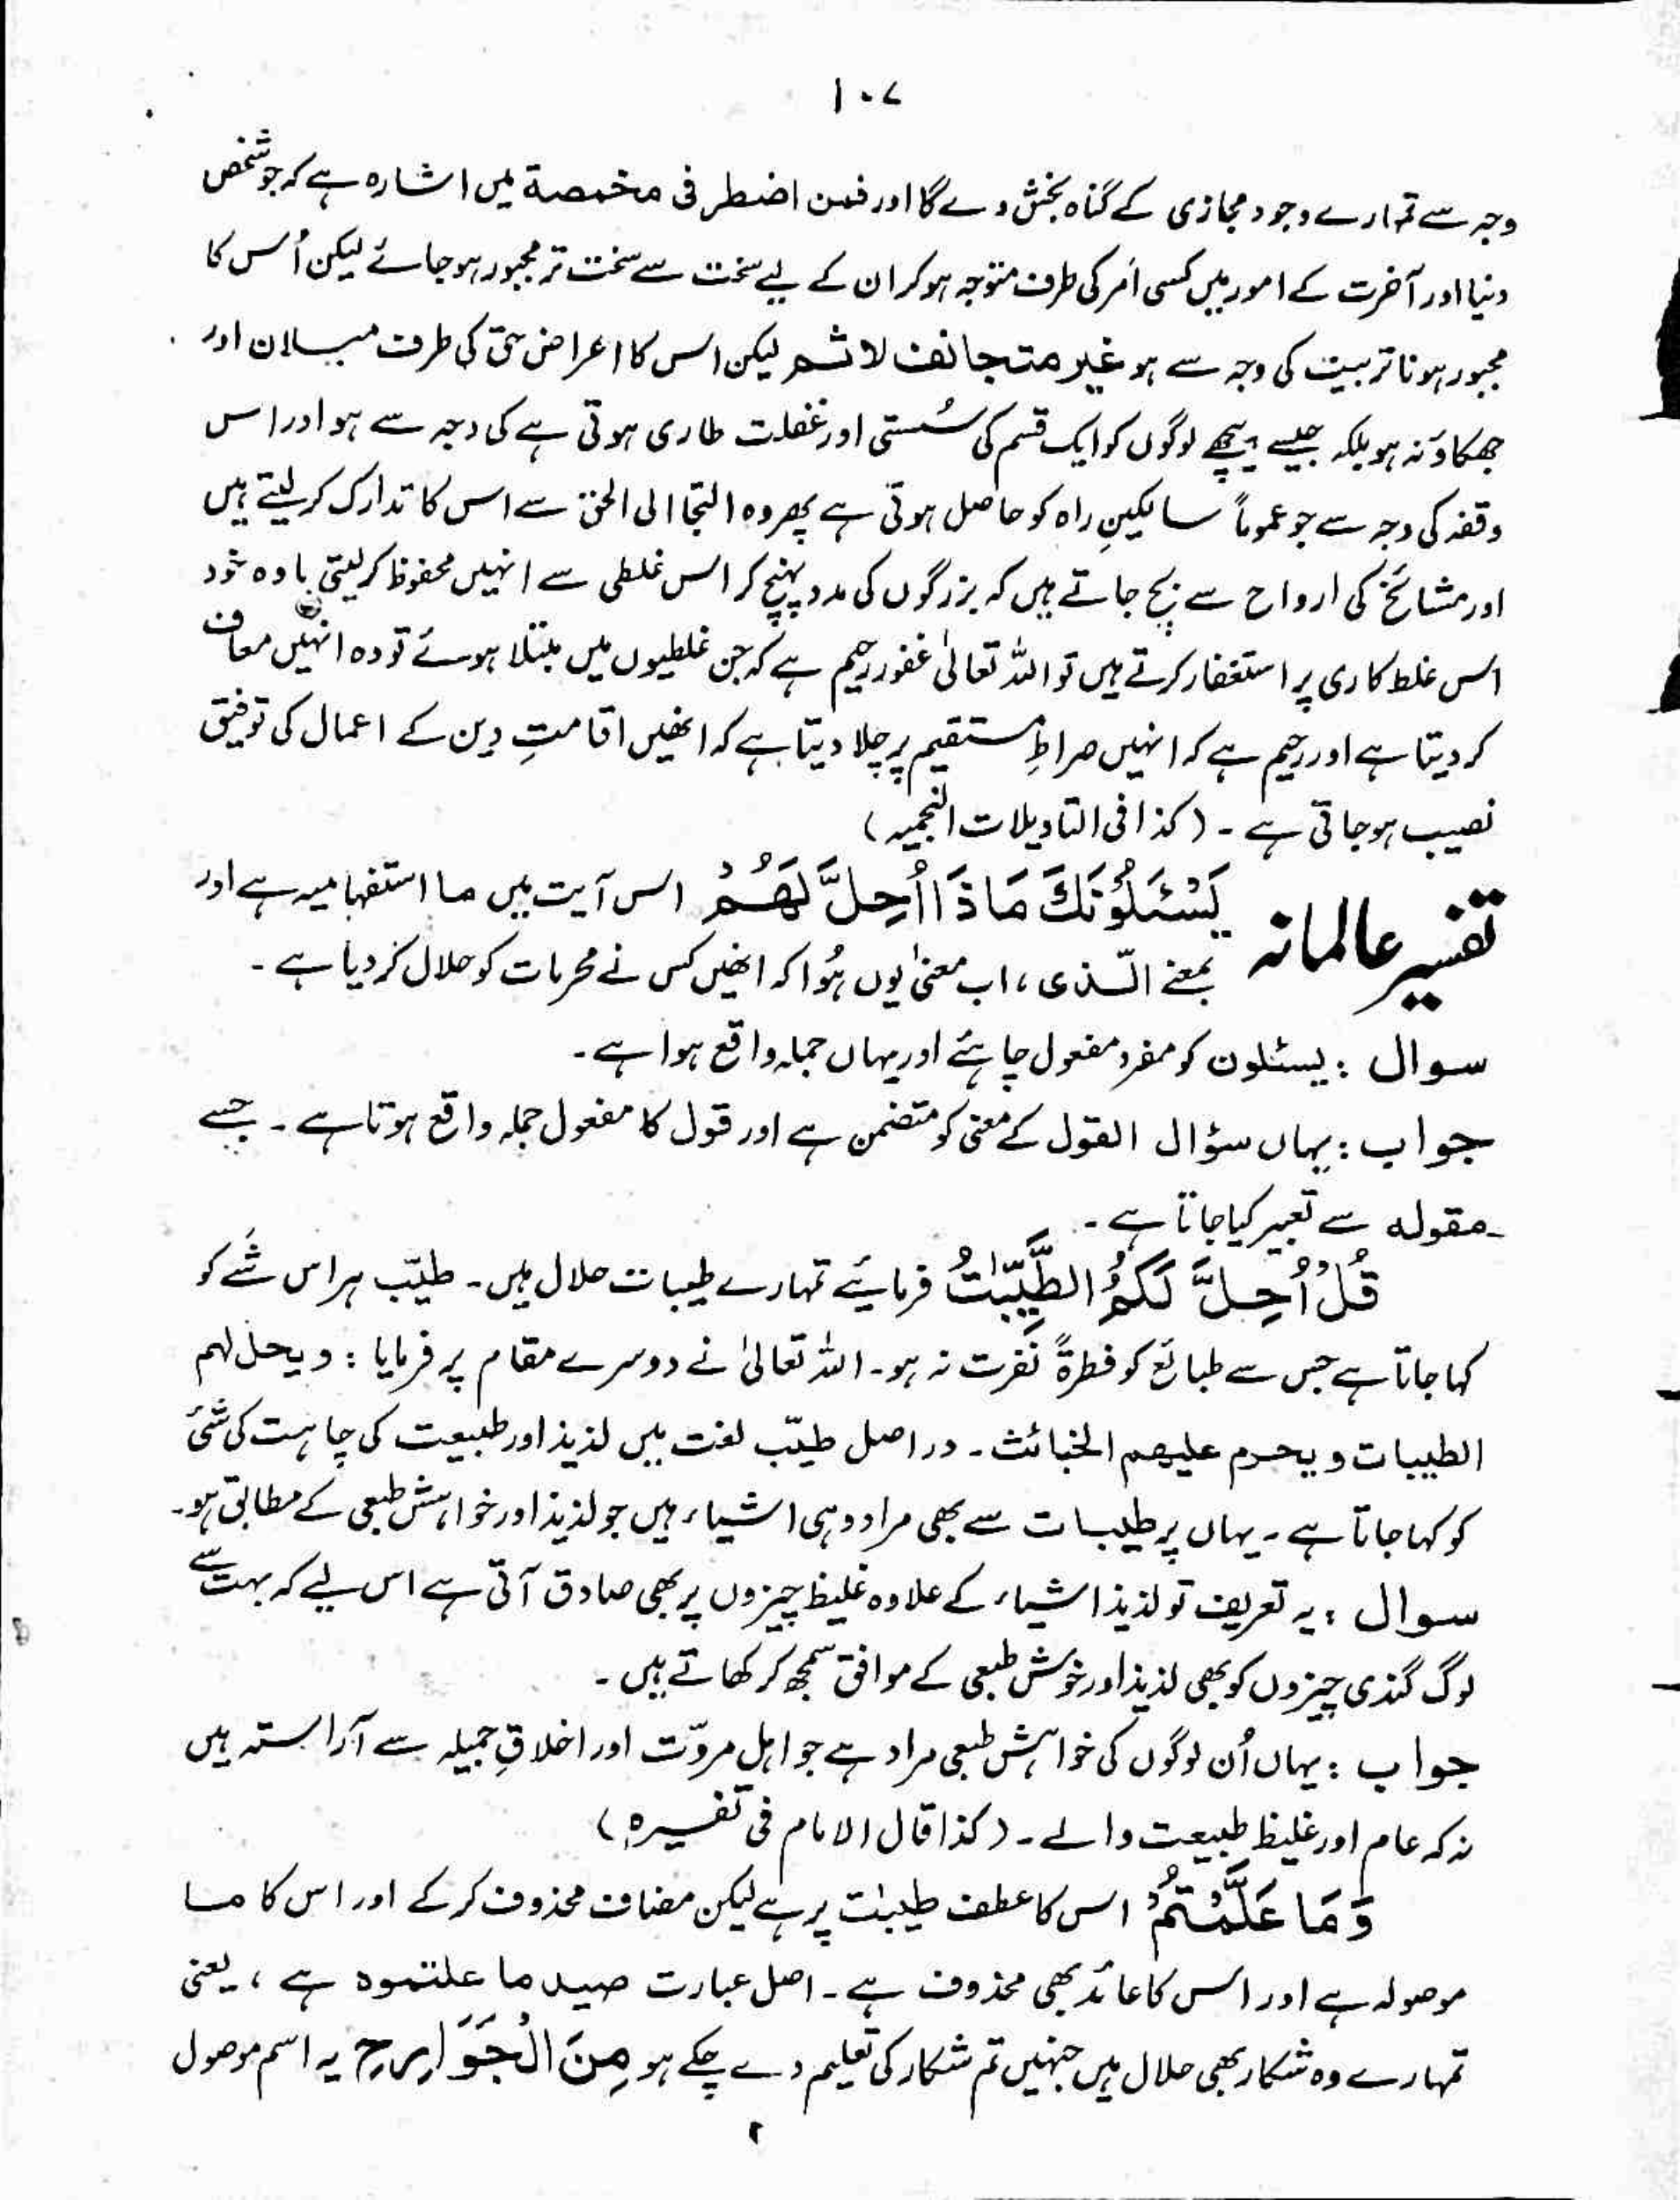 ۱۰۷
وجہ سے تمہارے وجود مجازی کے گناہ بخش دے گا اور فمن اضطر فی مخمصة میں اشارہ ہے کہ جو شخص
دنیا اور آخرت کے امور میں کسی اَمر کی طرف متوجہ ہو کر ان کے لیے سخت سے سخت تر مجبور ہو جائے لیکن اُس کا
مجبور ہونا تربیت کی وجہ سے ہو غیر متجانف لاثم لیکن اس کا اعراض حق کی طرف میلان اور
جھکاؤ نہ ہو بلکہ جیسے پیچھے لوگوں کو ایک قسم کی سُستی اور غفلت طاری ہوتی ہے کی وجہ سے ہو اور اس
وقفہ کی وجہ سے جو عموماً سالکینِ راہ کو حاصل ہوتی ہے پھر وہ التجا الی الحق سے اس کا تدارک کر لیتے ہیں
اور مشائخ کی ارواح سے بچ جاتے ہیں کہ بزرگوں کی مدد پہنچ کر اس غلطی سے انہیں محفوظ کر لیتی یا وہ خود
اس غلط کاری پر استغفار کرتے ہیں تو اللہ تعالیٰ غفور رحیم ہے کہ جن غلطیوں میں مبتلا ہوئے تو وہ انہیں معاف
کر دیتا ہے اور رحیم ہے کہ انہیں صراطِ مستقیم پر چلا دیتا ہے کہ انھیں اقامتِ دین کے اعمال کی توفیق
نصیب ہو جاتی ہے ۔ (کذا فی التاویلات النجمیہ)
تفسیر عالمانہ یَسْئَلُوْنَكَ مَاذَا اُحِلَّ لَھُمْ اس آیت میں ما استفہامیہ ہے اور
بمعنے الّذی ، اب معنیٰ یوں ہُوا کہ انھیں کس نے محرمات کو حلال کر دیا ہے ۔
سوال : یسئلون کو مفرد مفعول چاہئے اور یہاں جملہ واقع ہوا ہے ۔
جواب : یہاں سؤال القول کے معنی کو متضمن ہے اور قول کا مفعول جملہ واقع ہوتا ہے ۔ جسے
مقولہ سے تعبیر کیا جاتا ہے ۔
قُلْ اُحِلَّ لَكُمُ الطَّیِّبٰتُ فرمائیے تمہارے طیبات حلال ہیں ۔ طیّب ہر اس شَے کو
کہا جاتا ہے جس سے طبائع کو فطرۃً نفرت نہ ہو ۔ اللہ تعالیٰ نے دوسرے مقام پر فرمایا : ویحل لھم
الطیبات ویحرم علیھم الخبائث ۔ در اصل طیّب لغت میں لذیذ اور طبیعت کی چاہت کی شئ
کو کہا جاتا ہے ۔ یہاں پر طیبات سے بھی مراد وہی اشیاء ہیں جو لذیذ اور خواہش طبعی کے مطابق ہو ۔
سوال : یہ تعریف تو لذیذ اشیاء کے علاوہ غلیظ چیزوں پر بھی صادق آتی ہے اس لیے کہ بہت سے
لوگ گندی چیزوں کو بھی لذیذ اور خوش طبعی کے موافق سمجھ کر کھاتے ہیں ۔
جواب : یہاں اُن لوگوں کی خواہش طبعی مراد ہے جو اہل مروّت اور اخلاقِ جمیلہ سے آراستہ ہیں
نہ کہ عام اور غلیظ طبیعت والے ۔ (کذا قال الامام فی تفسیرہ)
وَمَا عَلَّمْتُمْ اس کا عطف طیبٰت پر ہے لیکن مضاف محذوف کر کے اور اس کا ما
موصولہ ہے اور اس کا عائد بھی محذوف ہے ۔ اصل عبارت صید ما علمتموہ ہے ، یعنی
تمہارے وہ شکار بھی حلال ہیں جنہیں تم شکار کی تعلیم دے چکے ہو مِنَ الْجَوَارِحِ یہ اسم موصول